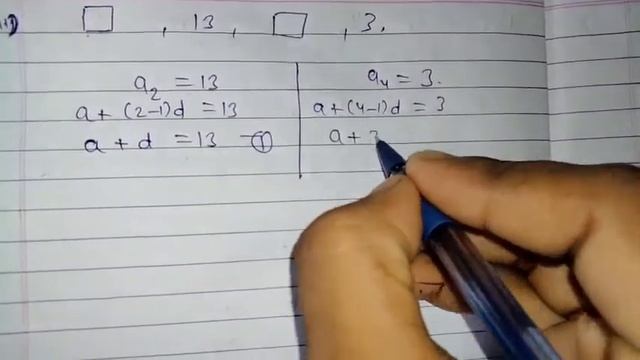 ii) □ , 13 , □ , 3.
a₂ = 13
a + (2-1)d = 13
a + d = 13 — ①
a₄ = 3.
a + (4-1)d = 3
a + 3